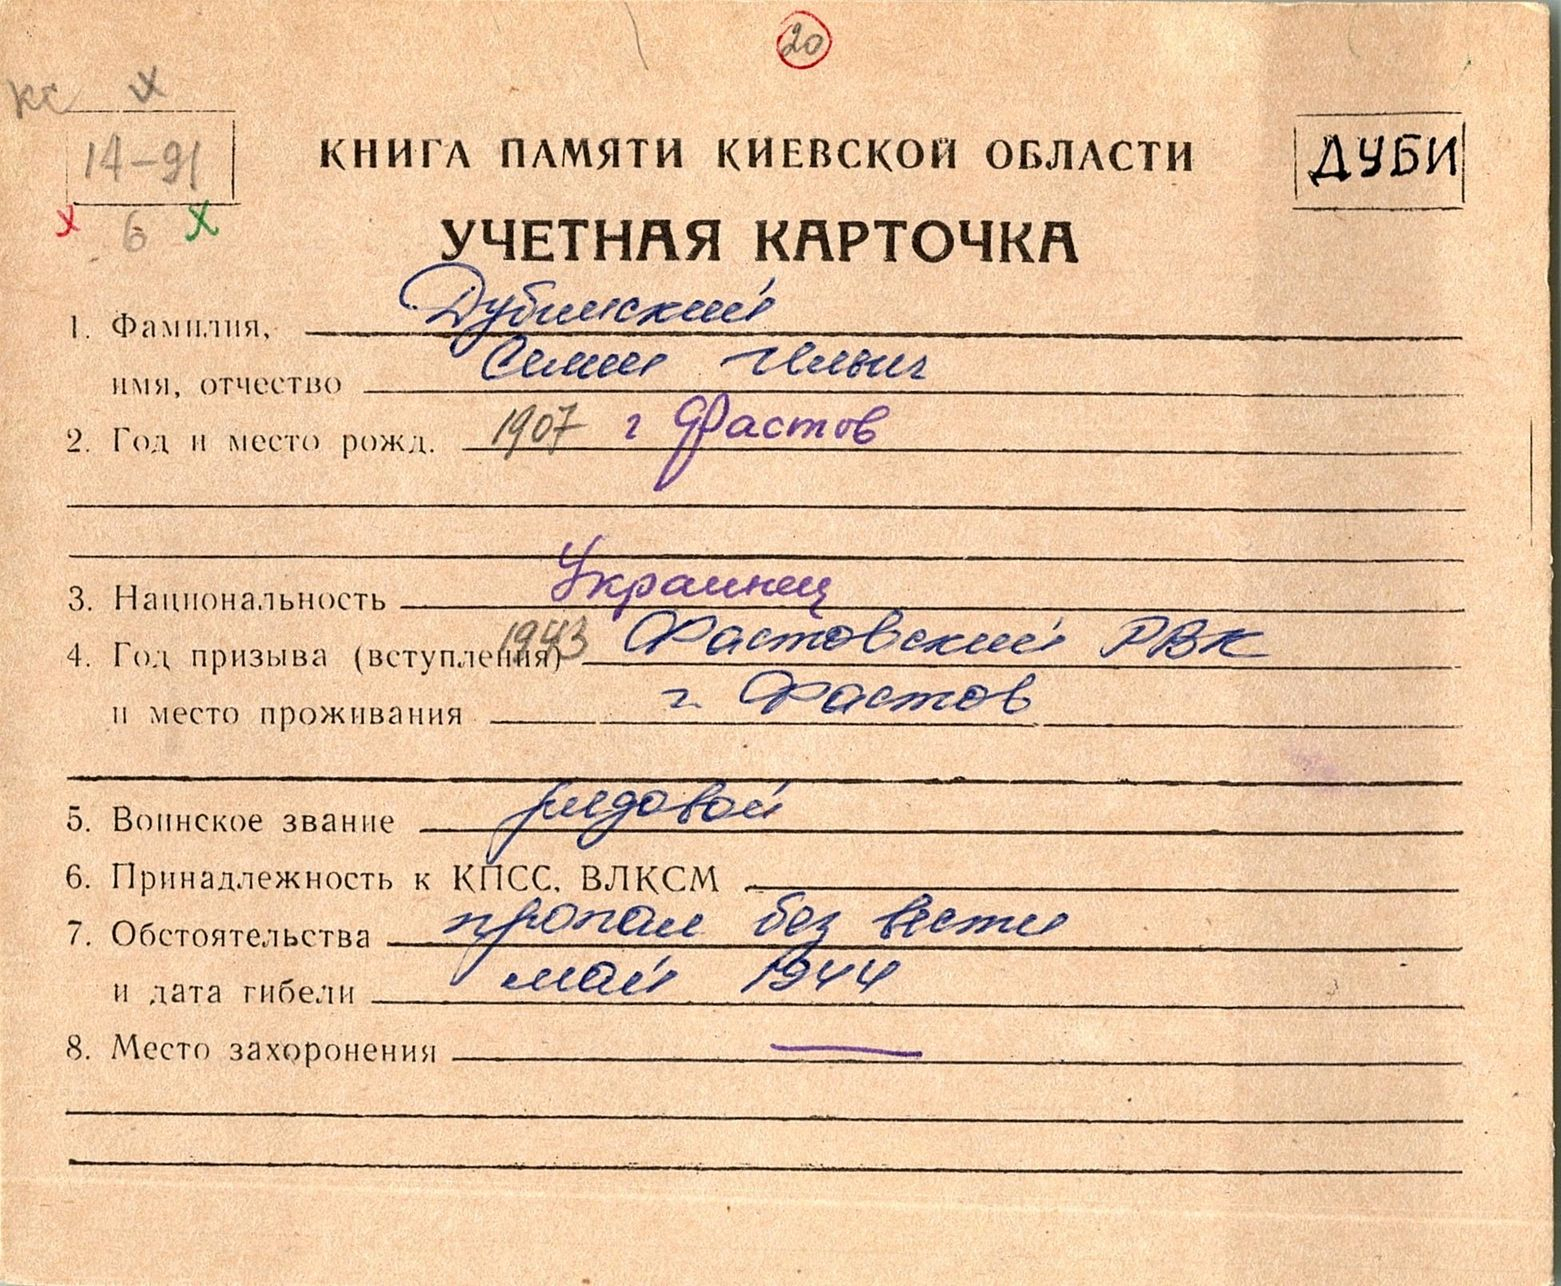 20
КС х
14-91
КНИГА ПАМЯТИ КИЕВСКОЙ ОБЛАСТИ
ДУБИ
х 6 х
УЧЕТНАЯ КАРТОЧКА
1. Фамилия, Дубинский
имя, отчество Семен Ильич
2. Год и место рожд. 1907 г Фастов
3. Национальность Украинец
4. Год призыва (вступления) 1943 Фастовский РВК
и место проживания г. Фастов
5. Воинское звание рядовой
6. Принадлежность к КПСС, ВЛКСМ
7. Обстоятельства пропал без вести
и дата гибели май 1944
8. Место захоронения —